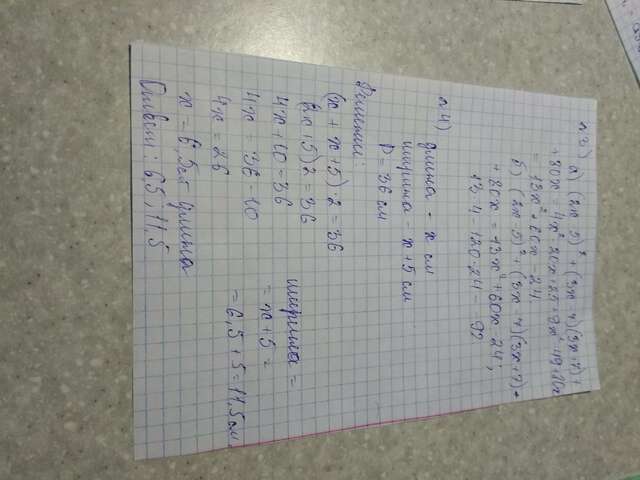 а) (2x-5)² + (3x-7)(3x+7) +
+ 80x = 4x² 20x + 25 + 9x² - 49 + 80x
= 13x² + 60x - 24
б) (2x-5)² + (3x-7)(3x+7) +
+ 80x = 13x² + 60x 24;
13·4 - 120-24 = -92
№4)
длина - x см
ширина - x+5 см
P = 36 см
Решение:
(x + x+5)·2 = 36
(2x+5)2 = 36
4x+10=36
4x = 36-10
4x = 26
x = 6,5см длина
ширина =
= x+5 =
= 6,5+5=11,5 см
Ответ: 6,5, 11,5